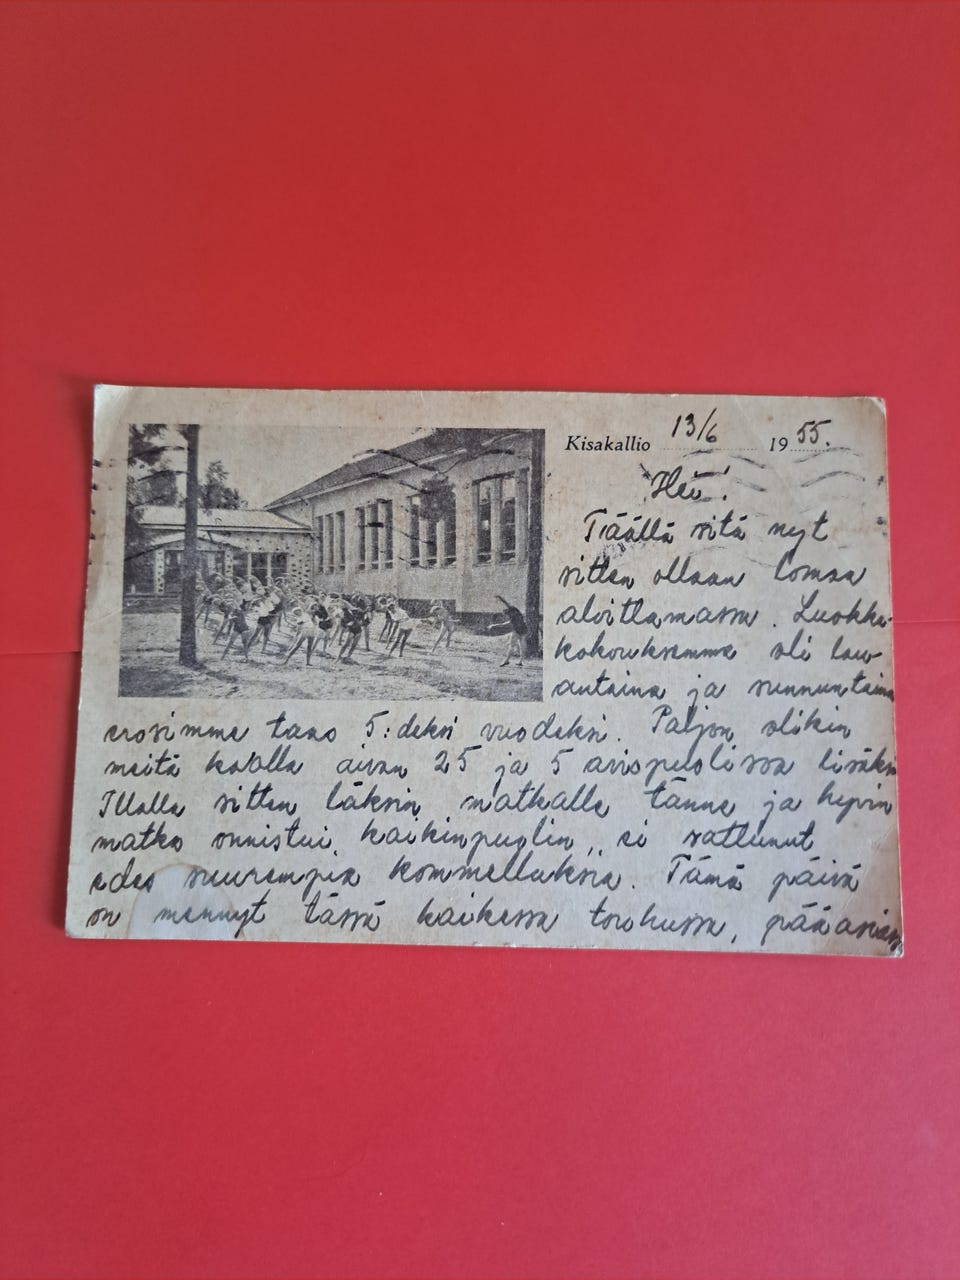 Kisakallio 13/6 1955.
Hei!
Täällä sitä nyt
sitten ollaan lomaa
aloittamassa. Luokka-
kokouksemme oli lau-
antaina ja sunnuntaina
erosimme taas 5:deksi vuodeksi. Paljon olikin
meitä koolla aivan 25 ja 5 aviopuolisoa lisäksi
Illalla sitten läksin matkalle tänne ja hyvin
matka onnistui kaikinpuolin, ei sattunut
edes suurempia kommelluksia. Tämä päivä
on mennyt tässä kaikessa touhussa, pääasiassa